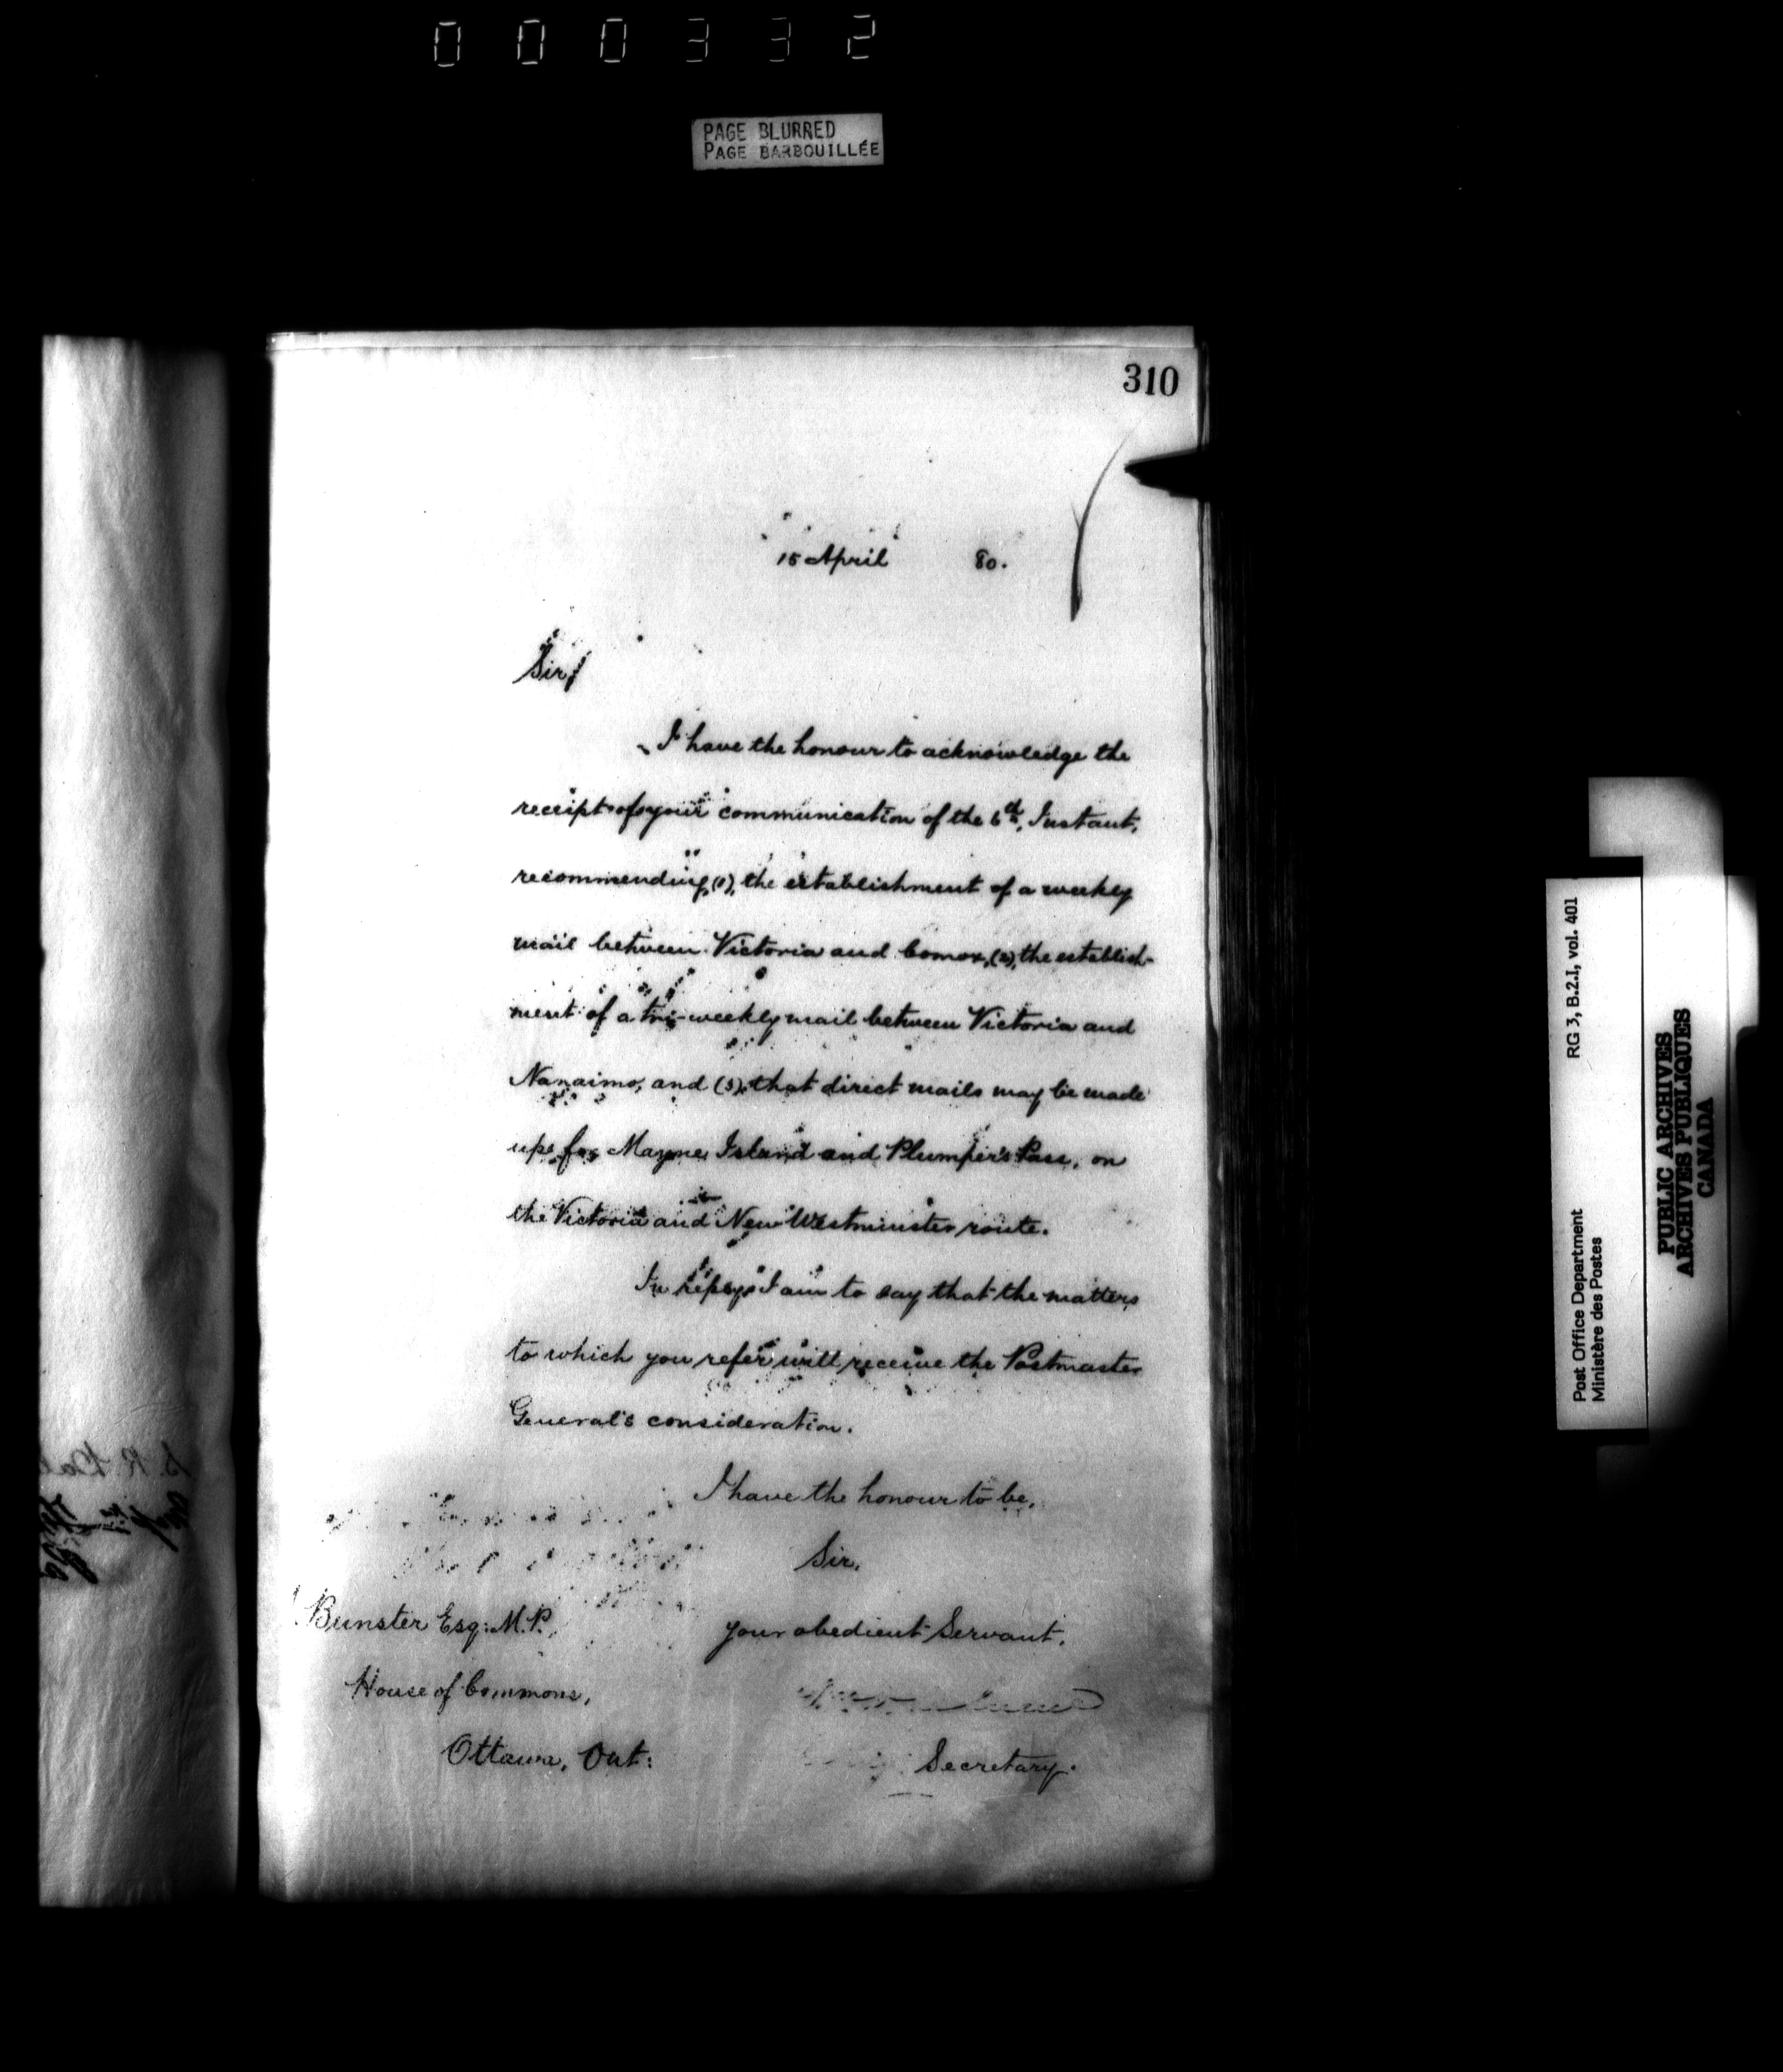 000332
PAGE BLURRED
PAGE BARBOUILLÉE
310
15 April 80.
Sir,
I have the honour to acknowledge the
receipt of your communication of the 6th, Instant,
recommending, (1), the establishment of a weekly
mail between Victoria and Comox, (2), the establish-
ment of a tri-weekly mail between Victoria and
Nanaimo, and (3), that direct mails may be made
up for Mayne Island and Plumper's Pass, on
the Victoria and New Westminster route.
In reply, I am to say that the matters
to which you refer will receive the Postmaster
General's consideration.
I have the honour to be,
Sir,
Your obedient Servant,
Secretary.
Bunster Esq: M.P.,
House of Commons,
Ottawa, Ont:
Post Office Department RG 3, B.2.I, vol. 401
Ministère des Postes
PUBLIC ARCHIVES
ARCHIVES PUBLIQUES
CANADA